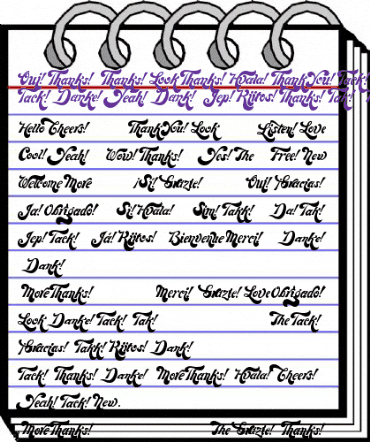 Oui! Thanks! Thanks! Look Thanks! Hvala! Thank You! Tack!
Tack! Danke! Yeah! Dank! Jep! Kiitos! Thanks! Tak!
Hello Cheers! Thank You! Look Listen! Love
Cool! Yeah! Wow! Thanks! Yes! The Free! New
Welcome More ¡Si! Grazie! Oui! Gracias!
Ja! Obrigado! Si! Hvala! Sim! Takk! Da! Tak!
Jep! Tack! Já! Kiitos! Bienvenue Merci! Danke!
Dank!
More Thanks! Merci! Grazie! Love Obrigado!
Look Danke! Tack! Tak! The Tack!
Gracias! Takk! Kiitos! Dank!
Tack! Thanks! Danke! More Thanks! Hvala! Cheers!
Yeah! Tack! New.
More Thanks! The Grazie! Thanks!